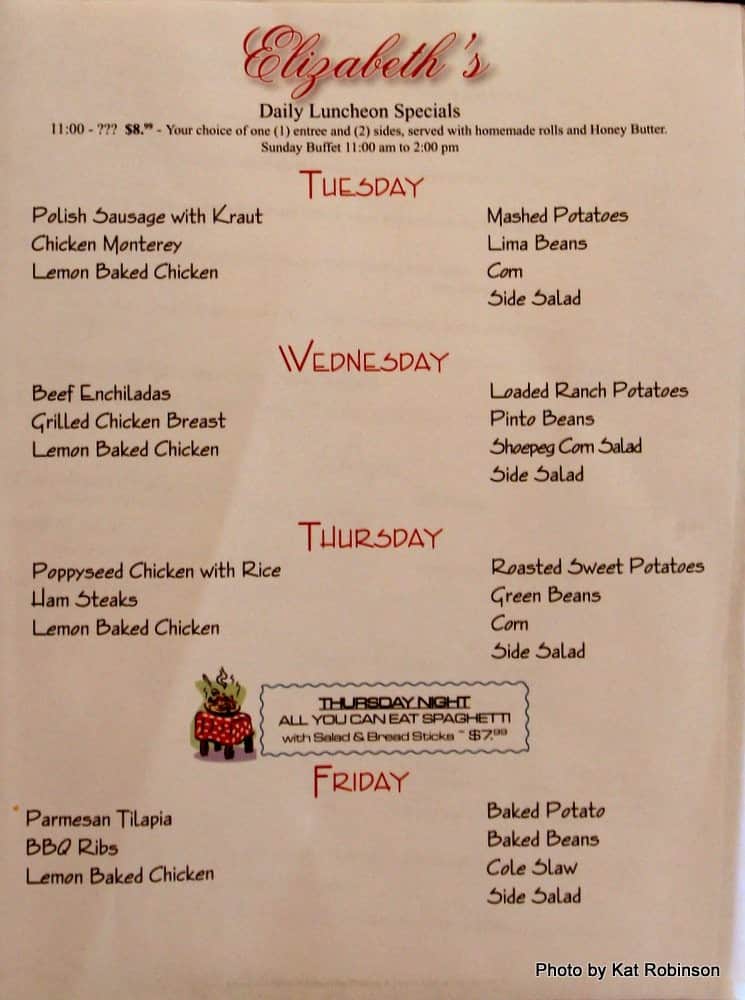 Elizabeth's
Daily Luncheon Specials
11:00 - ??? $8.99 - Your choice of one (1) entree and (2) sides, served with homemade rolls and Honey Butter.
Sunday Buffet 11:00 am to 2:00 pm
TUESDAY
Polish Sausage with Kraut
Chicken Monterey
Lemon Baked Chicken
Mashed Potatoes
Lima Beans
Corn
Side Salad
WEDNESDAY
Beef Enchiladas
Grilled Chicken Breast
Lemon Baked Chicken
Loaded Ranch Potatoes
Pinto Beans
Shoepeg Corn Salad
Side Salad
THURSDAY
Poppyseed Chicken with Rice
Ham Steaks
Lemon Baked Chicken
Roasted Sweet Potatoes
Green Beans
Corn
Side Salad
THURSDAY NIGHT
ALL YOU CAN EAT SPAGHETTI
with Salad & Bread Sticks ~ $7.99
FRIDAY
Parmesan Tilapia
BBQ Ribs
Lemon Baked Chicken
Baked Potato
Baked Beans
Cole Slaw
Side Salad
Photo by Kat Robinson